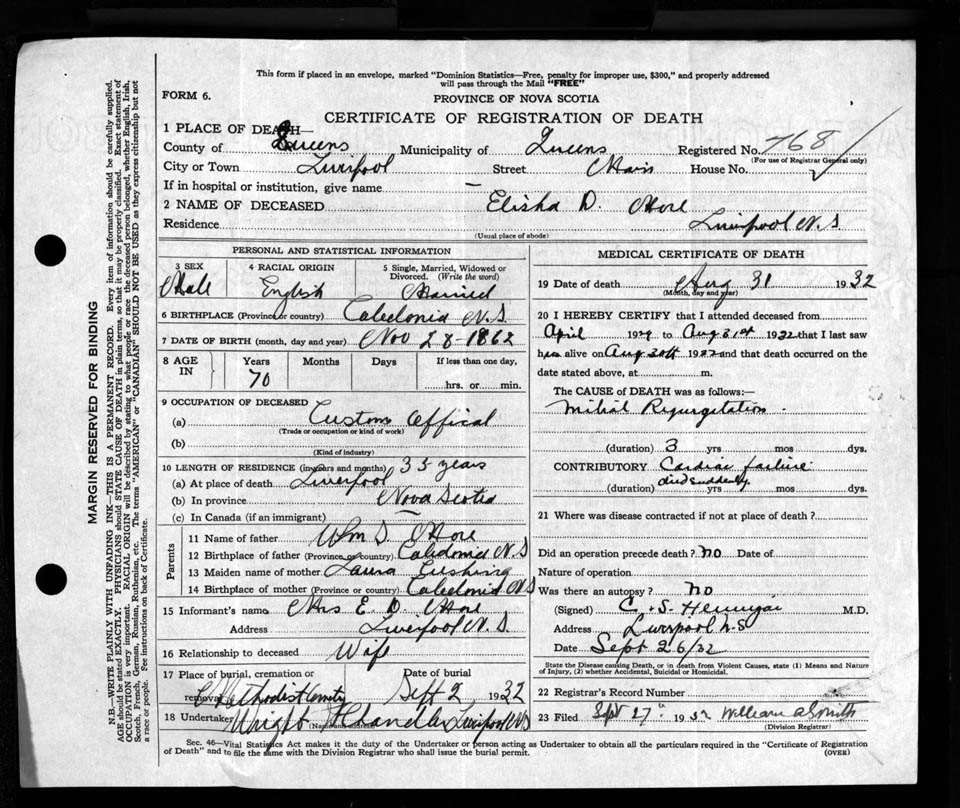 This form if placed in an envelope, marked "Dominion Statistics—Free, penalty for improper use, $300," and properly addressed
will pass through the Mail "FREE"
FORM 6.
PROVINCE OF NOVA SCOTIA
CERTIFICATE OF REGISTRATION OF DEATH
1 PLACE OF DEATH—
County of Queens Municipality of Queens Registered No. 768
(For use of Registrar General only)
City or Town Liverpool Street Main House No.
If in hospital or institution, give name —
2 NAME OF DECEASED Elisha D. More
Residence Liverpool N.S.
(Usual place of abode)
MARGIN RESERVED FOR BINDING
N.B.—WRITE PLAINLY WITH UNFADING INK—THIS IS A PERMANENT RECORD. Every item of information should be carefully supplied.
AGE should be stated EXACTLY. PHYSICIANS should STATE CAUSE OF DEATH in plain terms, so that it may be properly classified. Exact statement of
OCCUPATION is very important. RACIAL ORIGIN will be described by stating to what people or race the deceased person belonged, whether English, Irish,
Scotch, French, German, Russian, Ruthenian, etc. The terms "AMERICAN" or "CANADIAN" SHOULD NOT BE USED as they express citizenship but not
a race or people. See instructions on back of Certificate.
PERSONAL AND STATISTICAL INFORMATION
3 SEX
Male
4 RACIAL ORIGIN
English
5 Single, Married, Widowed or
Divorced. (Write the word)
Married
6 BIRTHPLACE (Province or country) Caledonia N.S.
7 DATE OF BIRTH (month, day and year) Nov 28-1862
8 AGE IN
Years 70 Months Days If less than one day,
hrs. or min.
9 OCCUPATION OF DECEASED
(a) Custom Offical
(Trade or occupation or kind of work)
(b)
(Kind of industry)
10 LENGTH OF RESIDENCE (in years and months) 35 years
(a) At place of death Liverpool
(b) In province Nova Scotia
(c) In Canada (if an immigrant)
Parents
11 Name of father Wm S. More
12 Birthplace of father (Province or country) Caledonia N S
13 Maiden name of mother Laura Cushing
14 Birthplace of mother (Province or country) Caledonia N S
15 Informant's name Mrs E. D. More
Address Liverpool N.S.
16 Relationship to deceased Wife
17 Place of burial, cremation or removal Date of burial
Methodist Sept 2 1932
18 Undertaker Wright Chandler Liverpool NS
(Name and address)
MEDICAL CERTIFICATE OF DEATH
19 Date of death Aug 31 1932
(Month, day and year)
20 I HEREBY CERTIFY that I attended deceased from
April 1929 to Aug 31st 1932 that I last saw
him alive on Aug 30th 1932 and that death occurred on the
date stated above, at m.
The CAUSE of DEATH was as follows:—
Mitral Regurgitation.
(duration) 3 yrs mos dys.
CONTRIBUTORY Cardiac failure
died suddenly.
(duration) yrs mos dys.
21 Where was disease contracted if not at place of death?
Did an operation precede death? no Date of
Nature of operation
Was there an autopsy? no
(Signed) C. S. M.D.
Address Liverpool N.S
Date Sept 26/32
State the Disease causing Death, or in death from Violent Causes, state (1) Means and Nature
of Injury, (2) whether Accidental, Suicidal or Homicidal.
22 Registrar's Record Number
23 Filed Sept 27" 1932 William A Smith
(Division Registrar)
Sec. 46—Vital Statistics Act makes it the duty of the Undertaker or person acting as Undertaker to obtain all the particulars required in the "Certificate of Registration
of Death" and to file the same with the Division Registrar who shall issue the burial permit. (OVER)